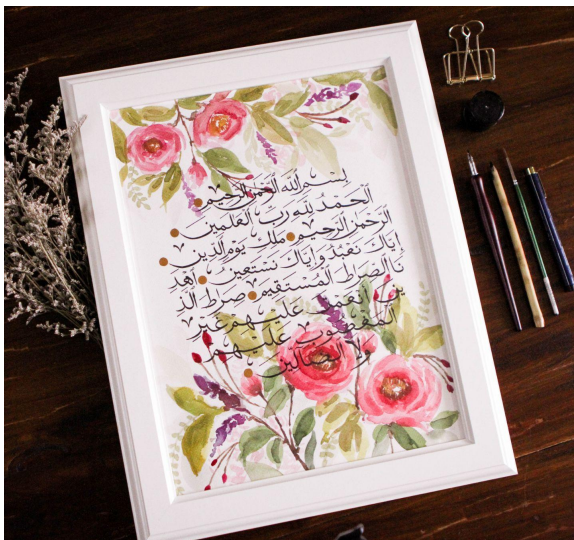 بِسْمِ اللَّهِ الرَّحْمَٰنِ الرَّحِيمِ
الْحَمْدُ لِلَّهِ رَبِّ الْعَٰلَمِينَ
الرَّحْمَٰنِ الرَّحِيمِ مَٰلِكِ يَوْمِ الدِّينِ
إِيَّاكَ نَعْبُدُ وَإِيَّاكَ نَسْتَعِينُ اهْدِ
نَا الصِّرَاطَ الْمُسْتَقِيمَ صِرَاطَ الَّذِ
ينَ أَنْعَمْتَ عَلَيْهِمْ غَيْرِ
الْمَغْضُوبِ عَلَيْهِمْ
وَلَا الضَّالِّينَ